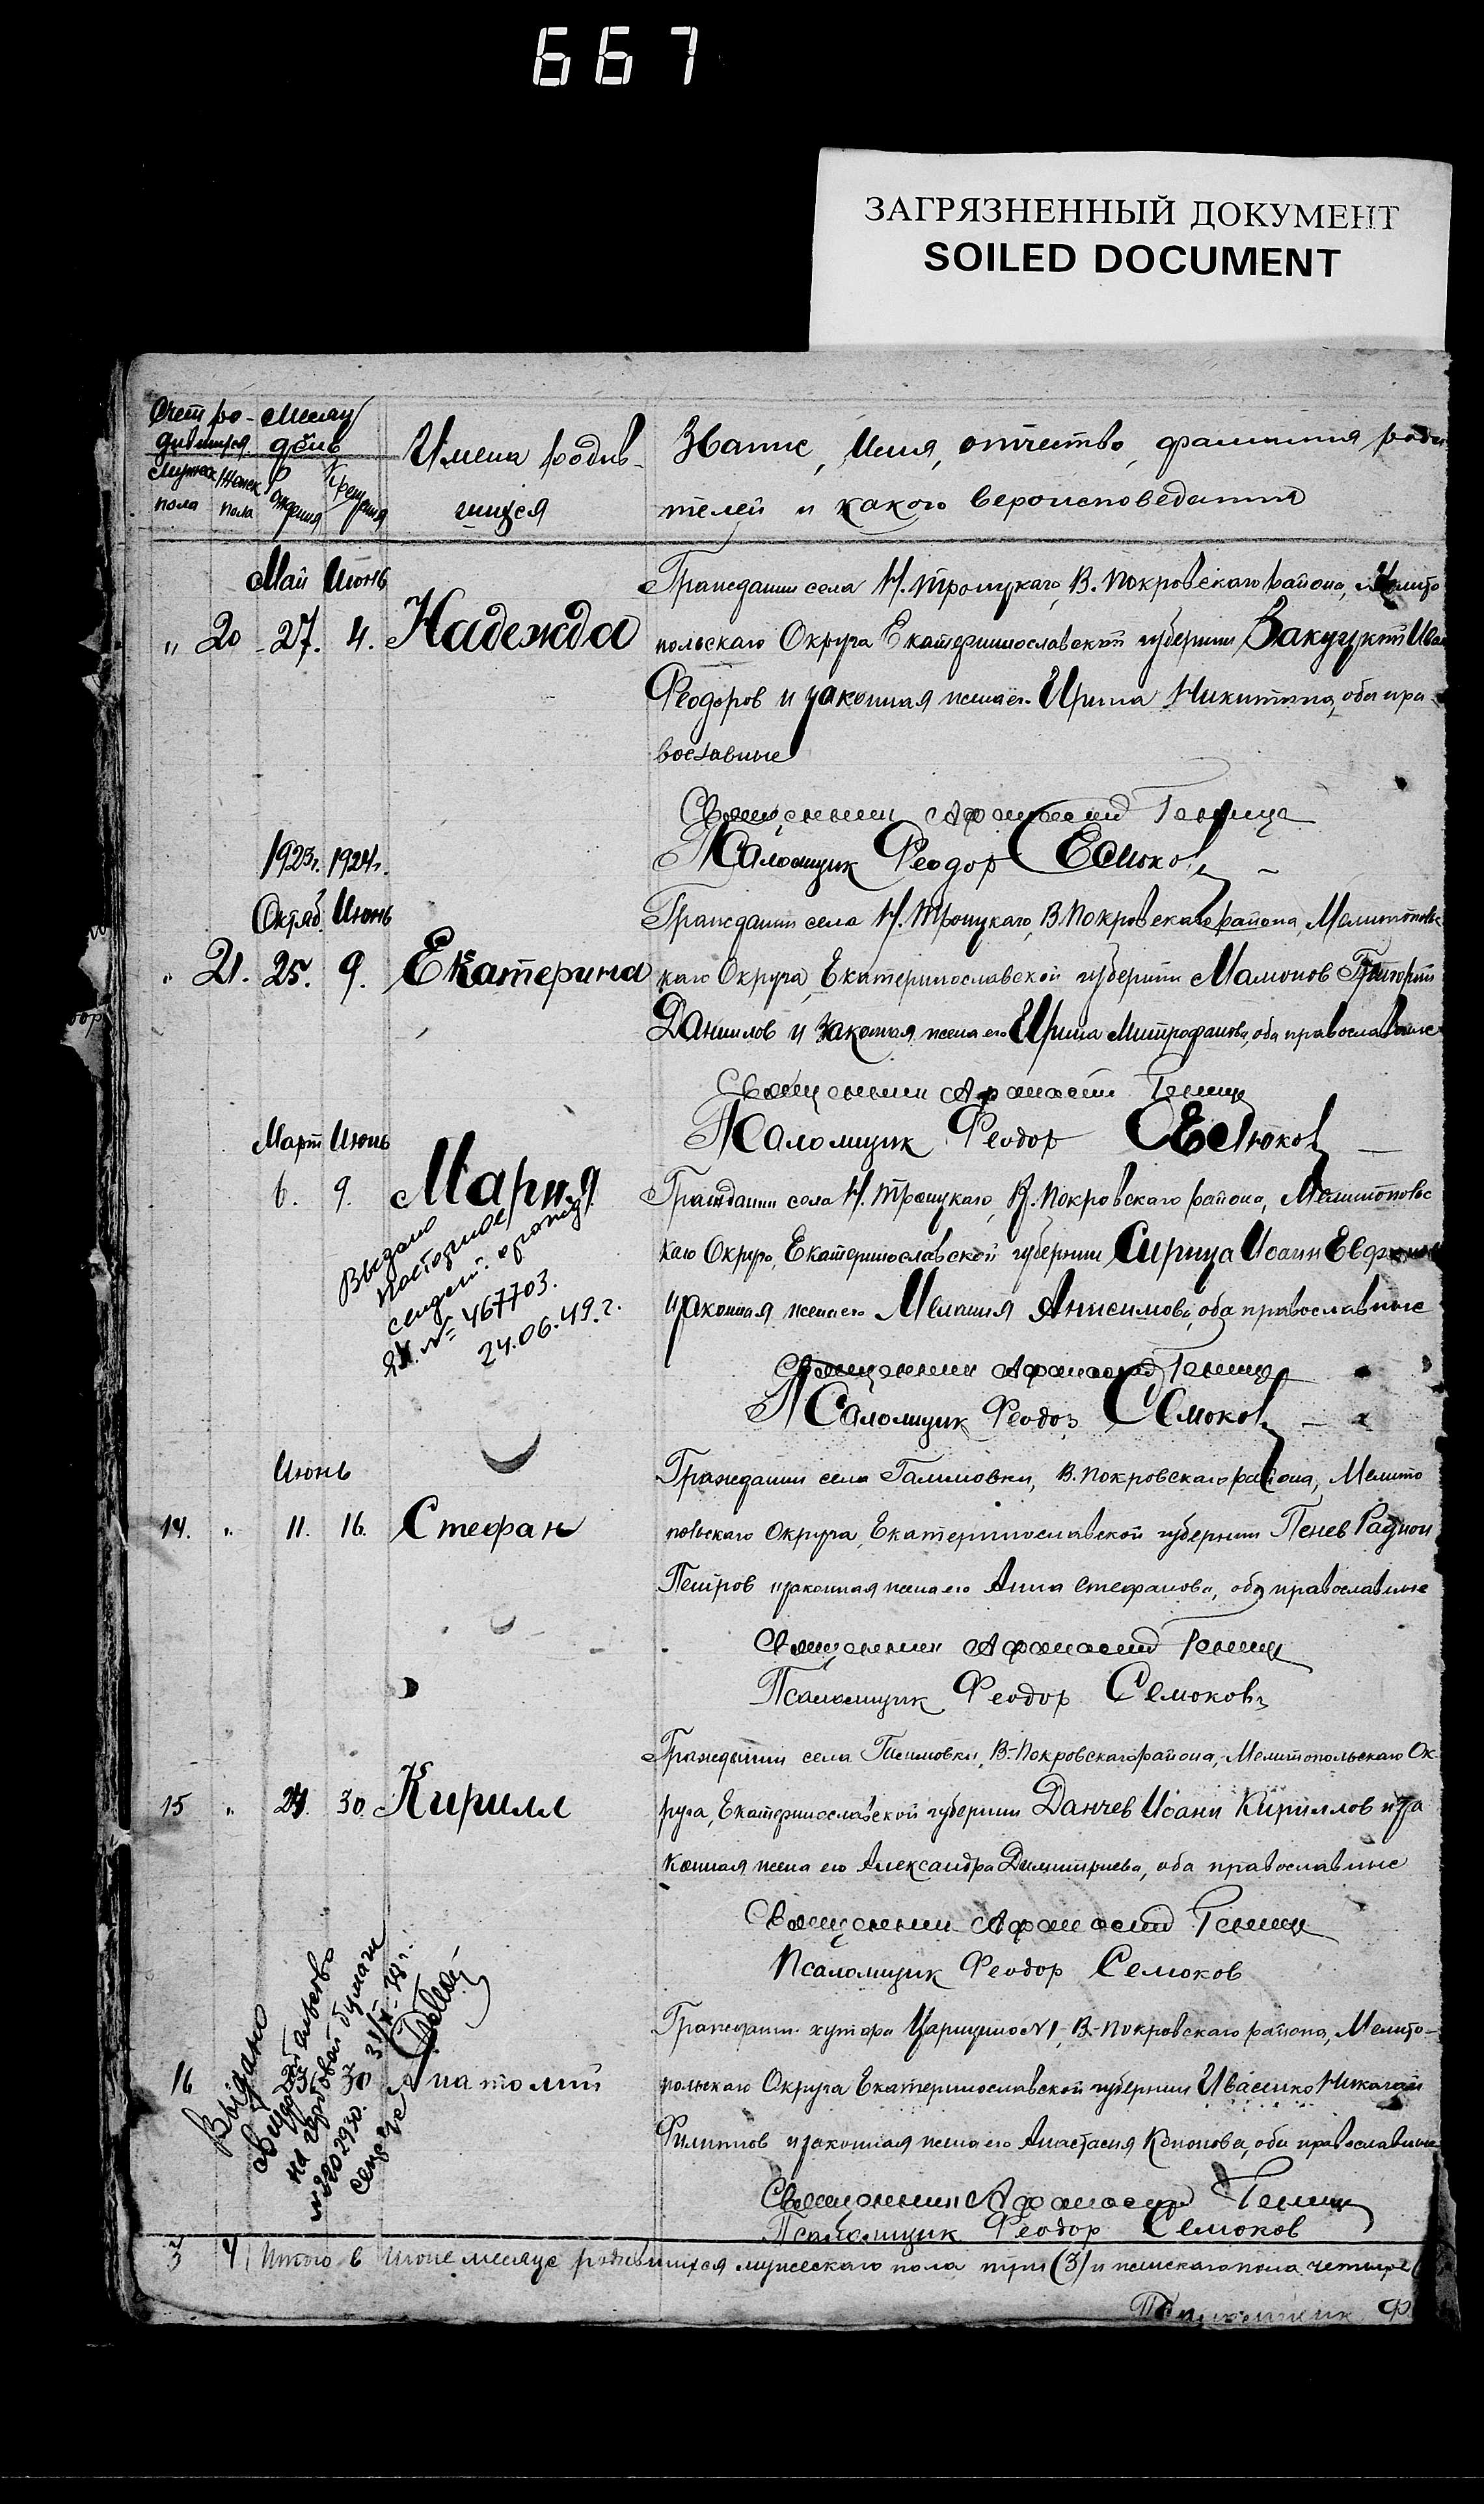 667
ЗАГРЯЗНЕННЫЙ ДОКУМЕНТ
SOILED DOCUMENT
Счет ро- Месяц
дившихся день
Мужеск Женск Рождения Крещения
пола пола
Имена родив-
шихся
Звание, Имя, отчество, фамилия роди
телей и какого вероисповедания
Май Июнь
" 20 27. 4. Надежда
Гражданин села Н. Троицкаго, В. Покровскаго района, Мелито
польскаго Округа Екатеринославской губернии Иван
Феодоров и законная жена его Ирина Никитина, оба пра-
вославные
Священник Афанасий
Псаломщик Феодор Семоков
1923г. 1924г.
Октяб. Июнь
" 21. 25. 9. Екатерина
Гражданин села Н. Троицкаго, В. Покровскаго района, Мелитопольс
каго Округа, Екатеринославской губернии Мамонов Григорий
Данилов и законная жена его Ирина Митрофанова, оба православные
Священник Афанасий
Псаломщик Феодор Семоков
Март Июнь
6. 9. Мария
Выдано
повторное
свидет. о рожд.
№ 467703.
24.06.49.г.
Гражданин села Н. Троицкаго, В. Покровскаго района, Мелитопольс
каго Округа, Екатеринославской губернии Сирица Иоанн
и законная жена его Мелания Анисимова, оба православные
Священник Афанасий
Псаломщик Феодор Семоков
Июнь
14. " 11. 16. Стефан
Гражданин села Гамовки, В. Покровскаго района, Мелито
польскаго Округа, Екатеринославской губернии Пенев Радион
Петров и законная жена его Анна Стефанова, оба православные
Священник Афанасий
Псаломщик Феодор Семоков
15 " 24. 30. Кирилл
Гражданин села В.-Покровскаго района, Мелитопольскаго Ок-
руга, Екатеринославской губернии Данчев Иоанн Кириллов и за
конная жена его Александра Димитриева, оба православные
Священник Афанасий
Псаломщик Феодор Семоков
16 30 Анатолий
Выдано
свидетельство
на гербовой бумаге
№ 2202930.
Гражданин хутора №1, В.-Покровскаго района, Мелито-
польскаго Округа Екатеринославской губернии Иваенко Николай
Филиппов и законная жена его Анастасия Кононова, оба православные
Священник Афанасий
Псаломщик Феодор Семоков
3 4 Итого в Июне месяце родившихся мужескаго пола три (3) и женскаго пола четыре (
Псаломщик Ф